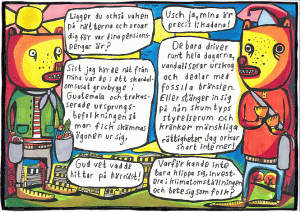 Ligger du också vaken
på nätterna och oroar
dig för var dina pensions-
pengar är?
Usch ja, mina är
precis likadana!
Sist jag hörde nåt från
mina var de i ett skandal-
omsusat gruvbygge i
Guatemala och trakas-
serade ursprungs-
befolkningen så
man fick skämmas
ögonen ur sig.
De bara driver
runt hela dagarna,
vandaliserar urskog
och dealar med
fossila bränslen.
Eller stänger in sig
på nån skum typs
styrelserum och
kränker mänskliga
rättigheter. Jag orkar
snart inte mer!
Gud vet vad de
hittar på härnäst!
Varför kan de inte
bara klippa sig, invest-
era i klimatomställningen
och bete sig som folk?